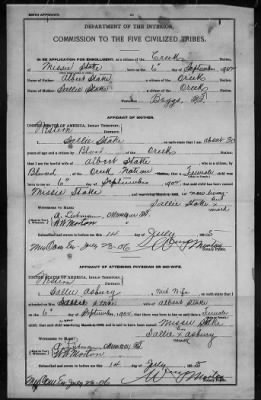 BIRTH AFFIDAVIT.
DEPARTMENT OF THE INTERIOR,
COMMISSION TO THE FIVE CIVILIZED TRIBES.
IN RE APPLICATION FOR ENROLLMENT, as a citizen of the Creek Nation,
of Missie Stake, born on the 6" day of September, 190
Name of Father: Albert Stake a citizen of the Creek Nation.
Name of Mother: Sallie Stake a citizen of the Creek Nation.
Postoffice Braggs I.T.
AFFIDAVIT OF MOTHER.
UNITED STATES OF AMERICA, Indian Territory,
Western District.
I, Sallie Stake, on oath state that I am about 30
years of age and a citizen by Blood, of the Creek Nation;
that I am the lawful wife of Albert Stake, who is a citizen, by
Blood of the Creek Nation; that a female child was
born to me on 6" day of September, 190; that said child has been named
Missie Stake, and is now living.
Sallie Stake
WITNESSES TO MARK:
mark
W Morton
Subscribed and sworn to before me this 14 day of July, 1905
My Com Ex July 23-06
Morton
AFFIDAVIT OF ATTENDING PHYSICIAN OR MIDWIFE.
UNITED STATES OF AMERICA, Indian Territory,
Western District.
I, Sallie Asbury, a Mid Wife, on oath state that I
attended on Mrs. Sallie Stake, wife of Albert Stake
on the 6" day of September, 190; that there was born to her on said date a female
child; that said child is now living and is said to have been named Missie Stake
Sallie x Asbury
WITNESSES TO MARK:
mark
W Morton
Subscribed and sworn to before me this 14 day of July, 1905
My Com Ex July 23-06
Morton